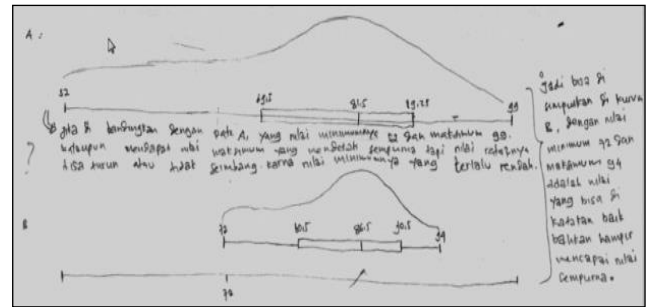 A :
32
69,5
81,5
89,25
99
Jika di bandingkan dengan data A, yang nilai minimumnya 32 dan maksimum 99.
walaupun mendapat nilai maksimum yang mendekati sempurna tapi nilai
bisa turun atau tidak seimbang. karna nilai minimumnya yang terlalu rendah.
?
B
72
80,5
86,5
90,5
94
70
Jadi bisa di
simpulkan di kurva
B, dengan nilai
minimum 72 dan
maksimum 94
adalah nilai
yang bisa di
katakan baik
bahkan hampir
mencapai nilai
sempurna.